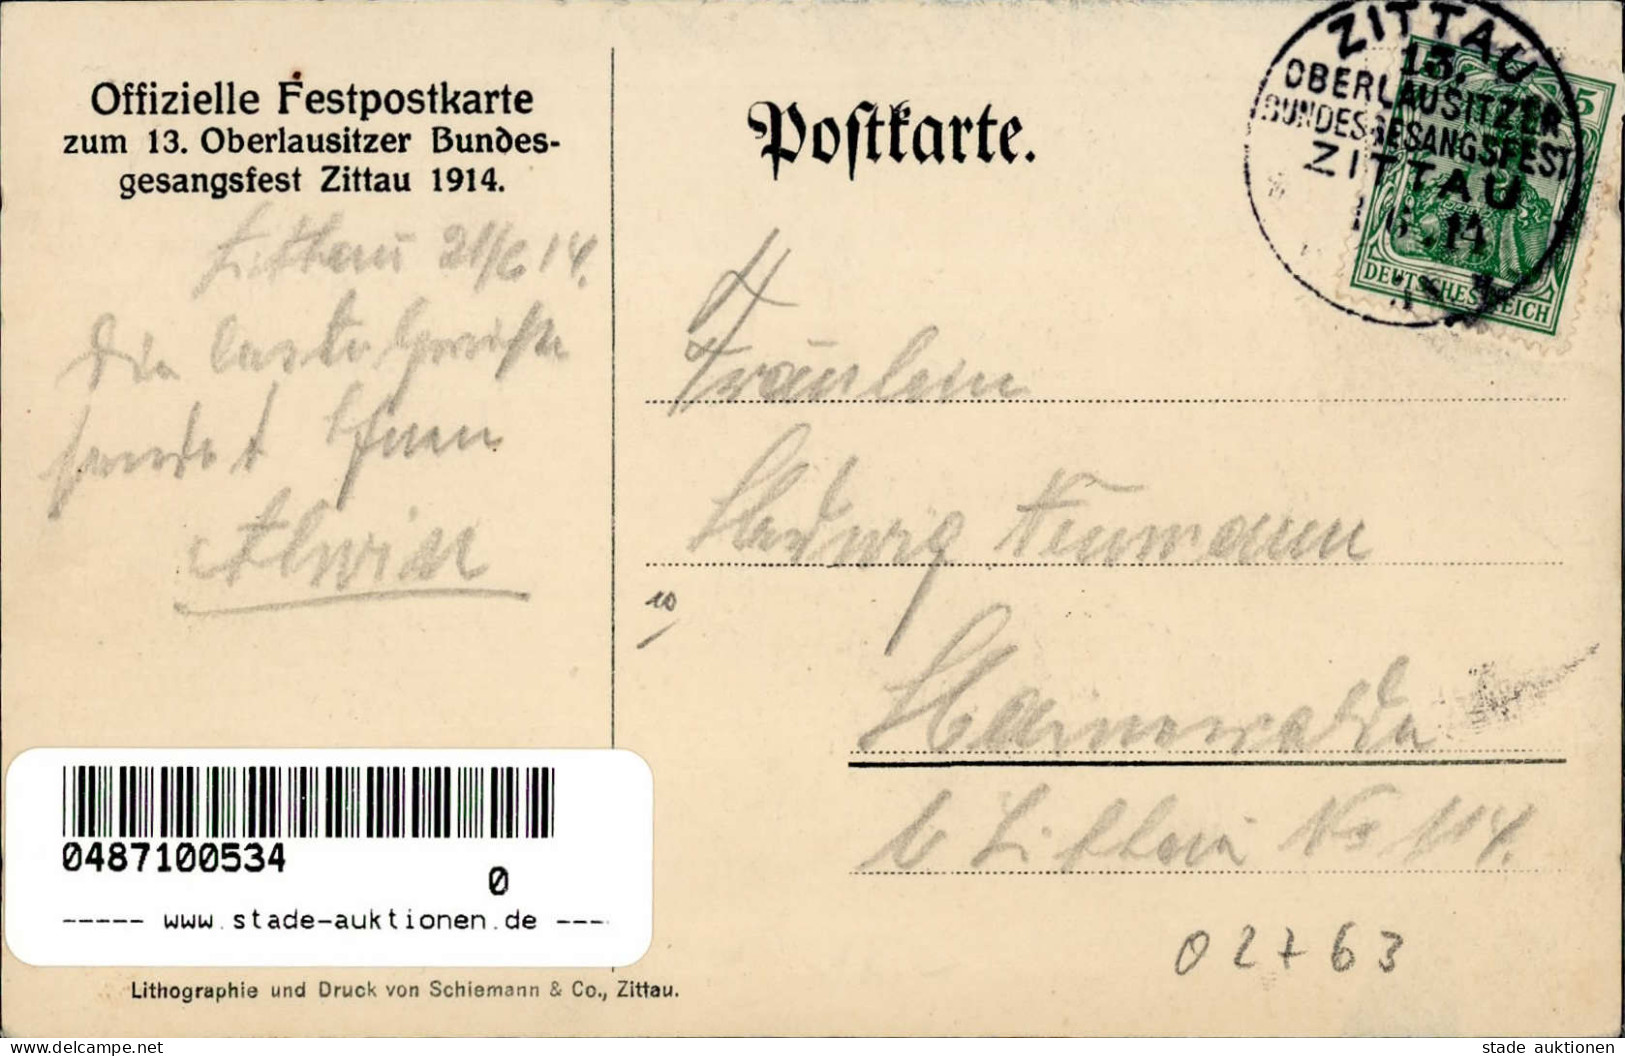 Offizielle Festpostkarte
zum 13. Oberlausitzer Bundes-
gesangsfest Zittau 1914.
Postkarte.
ZITTAU
13.
OBERLAUSITZER
BUNDESGESANGSFEST
ZITTAU
6.14
5
DEUTSCHES REICH
Zittau 21/6 14.
Die besten Grüße
sendet Ihnen
Alwin
Fräulein
Hedwig Neumann
10
Hainewalde
b Zittau No 114.
02763
0487100534
0
----- www.stade-auktionen.de ---
Lithographie und Druck von Schiemann & Co., Zittau.
www.delcampe.net
stade auktionen